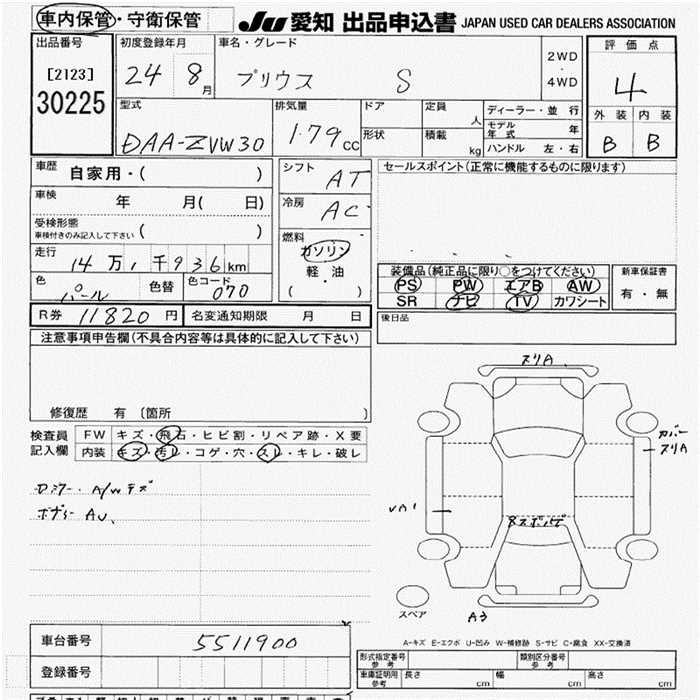 車内保管・守衛保管
JU 愛知 出品申込書 JAPAN USED CAR DEALERS ASSOCIATION
出品番号
[2123]
30225
初度登録年月
24 8月
車名・グレード
プリウス S
2WD
・
4WD
評価点
4
外装 内装
B B
型式
DAA-ZVW30
排気量
1.79cc
ドア
定員 人
形状
積載 kg
ディーラー・並行
モデル年式 年
ハンドル 左・右
車歴
自家用・( )
車検
年 月( 日)
受検形態
車検付きのみ記入して下さい ( )
走行
14万1千936km
色
パール
色替
色コード
070
シフト
AT
冷房
AC
燃料
ガソリン
・
軽・油
( )
セールスポイント(正常に機能するものに限ります)
装備品(純正品に限り○をつけてください)
PS PW エアB AW
SR ナビ TV カワシート
新車保証書
有・無
R券 11820円
名変通知期限 月 日
後日品
注意事項申告欄(不具合内容等は具体的に記入して下さい)
修復歴 有 〔箇所 〕
検査員記入欄
FW キズ・飛石・ヒビ割・リペア跡・X要
内装 キズ・汚レ・コゲ・穴・スレ・キレ・破レ
A/Wキズ
ボデーAU、
スリA
カバー
スリA
A3
スペア
A-キズ E-エクボ U-凹み W-補修跡 S-サビ C-腐食 XX-交換済
車台番号
5511900
登録番号
形式指定番号
参考
類別区分番号
参考
車庫証明用
参考
長さ cm 幅 cm 高さ cm